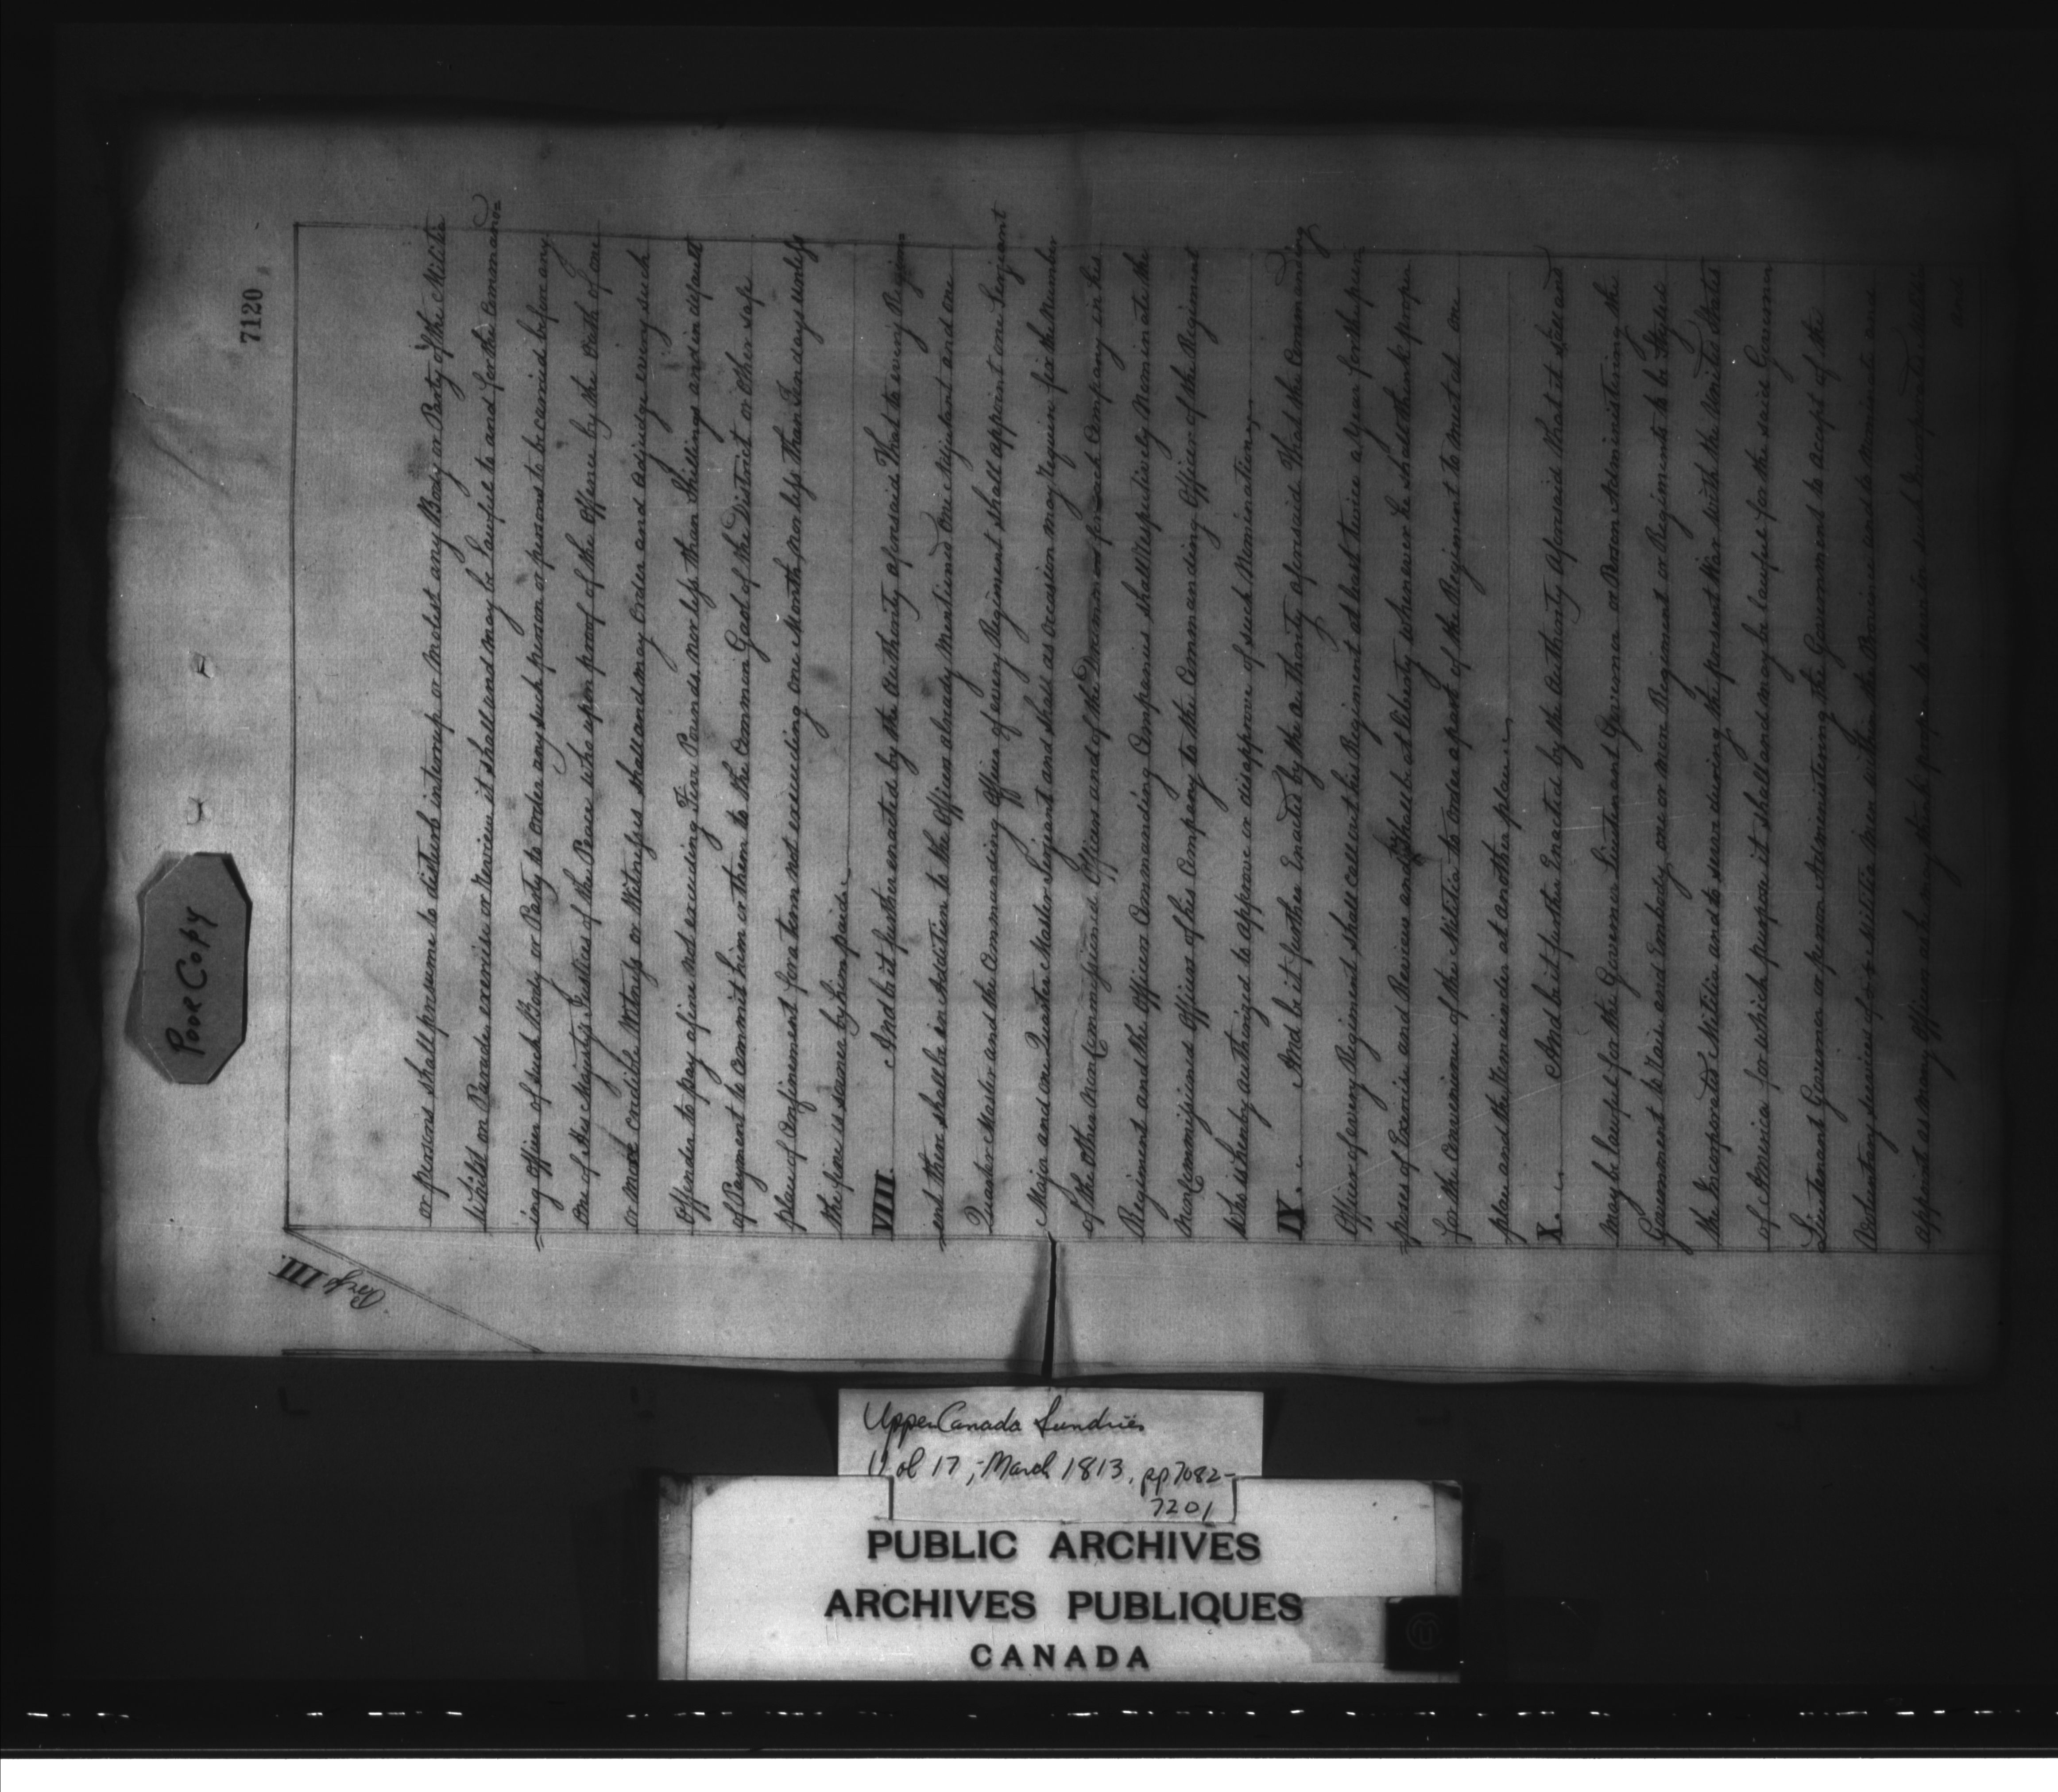 7120
POOR COPY
Page III.
or persons shall presume to disturb interrup or Molest any Body or Party of the Militia
Whilst on Parade exercise or Review it shall and may be Lawful to and for the Command
ing Officer of such Body or Party to order any such person or persons to be carried before any
One of His Majesty's Justices of the Peace who upon proof of the Offence by the Oath of one
or more credible Wtnefs or Witnefses shall and may Order and adjudge every such
Offender to pay a fine not exceeding Five Pounds nor lefs than Shillings and in default
of Payment to Commit him or them to the Common Gaol of the District or Other safe
place of Confinement for a term not exceeding one Month, nor lefs than Ten days unlefs
the fine is sooner by him paid.
VIII. And be it further enacted by the Authority aforesaid That to every Regim
ent there shall be in Addition to the Officers already Mentioned One Adjutant and one
Quarter Master and the Commanding Officer of every Regiment shall appoint one Serjeant
Major and one Quarter Master Serjeant and shall as occasion may require fix the Number
of the other Non Commifsioned Officers and of the Drummers for each Company in his
Regiment and the Officers Commanding Companies shall respectively Nominate the
Non Commifsioned Officers of his Company to the Commanding Officer of the Regiment
who is hereby authorized to approve or disapprove of such Nomination.
IX. And be it further Enacted by the authority aforesaid That the Commanding
Officer of every Regiment shall call out his Regiment at least twice a year for the pur
poses of Exercise and Review and shall be at liberty whenever he shall think proper
for the Convenience of the Militia to order a part of the Regiment to Meet at one
place and the Remainder at another place.
X. And be it further Enacted by the Authority aforesaid That it shall and
may be lawful for the Governor Lieutenant Governor or Person Administering the
Government to Raise and Embody one or more Regiment or Regiments to be Styled
the Incorporated Militia and to serve during the present War with the United States
of America for which purpose it shall and may be lawful for the said Governor
Lieutenant Governor or person Administering the Government to accept of the
Voluntary services of Militia Men within the Province and to Nominate and
appoint as many Officers as he may think proper to serve in such Incorporated Militia
and
Upper Canada Sundries
Vol 17, - March 1813, pp 7082-
7201
PUBLIC ARCHIVES
ARCHIVES PUBLIQUES
CANADA